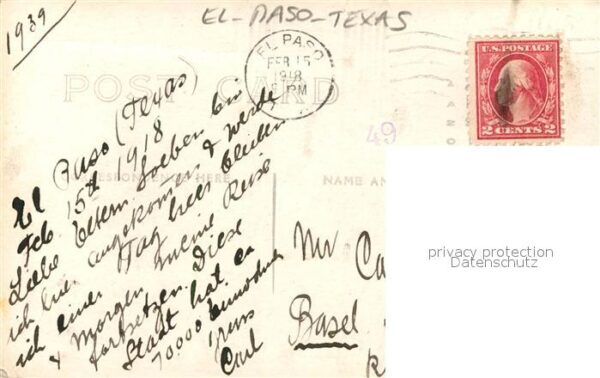 1939
EL-PASO-TEXAS
EL PASO
FEB 15
1918
PM
U.S. POSTAGE
2 CENTS 2
POST CARD
49
CORRESPONDENCE HERE
NAME AN
El Paso (Texas)
Feb. 15th 1918
Liebe Eltern Soeben bin
ich hier angekommen & werde
ich einen Tag hier bleiben
& morgen meine Reise
fortsetzen. Diese
Stadt hat ca
70.000 Einwohner
Carl
Mr Ca
Basel
privacy protection
Datenschutz